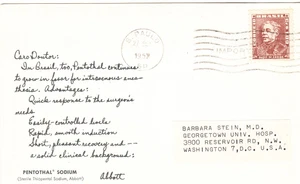 Caro Doutor:
In Brasil, too, Pentothal continues
to grow in favor for intravenous anes-
thesia. Advantages:
Quick response to the surgeon's
needs
Easily-controlled levels
Rapid, smooth induction
Short, pleasant recovery and —
a solid clinical background.
Abbott
PENTOTHAL® SODIUM
(Sterile Thiopental Sodium, Abbott)
BRASIL
BARBARA STEIN, M.D.
GEORGETOWN UNIV. HOSP.
3900 RESERVOIR RD, N.W.
WASHINGTON 7, D.C. U.S.A.